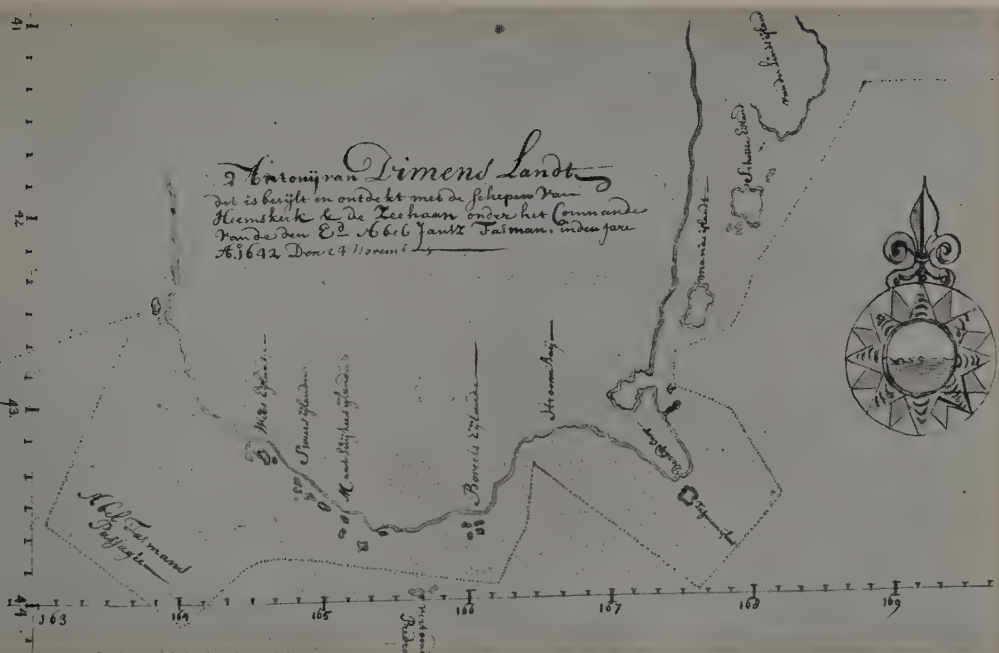 41
42
43
44
Antonij van Dimens Landt
dit is beseijlt en ontdekt met de schepen van
Heemskerk & de Zeehaan onder het Commande
van de den Ed Abel Jantz Tasman inden jare
Aº 1642 Den 24 Novemb
Abel Tasmans
Passagie
Wits Eijlanden
Sweers Eijlanden
Maatsuijkers Eijlanden
Boreels Eijlande
Storm Baij
Maria Eijlandt
Schouten Eijland
van der Lins Eijland
163
164
165
166
167
168
169
Pedra